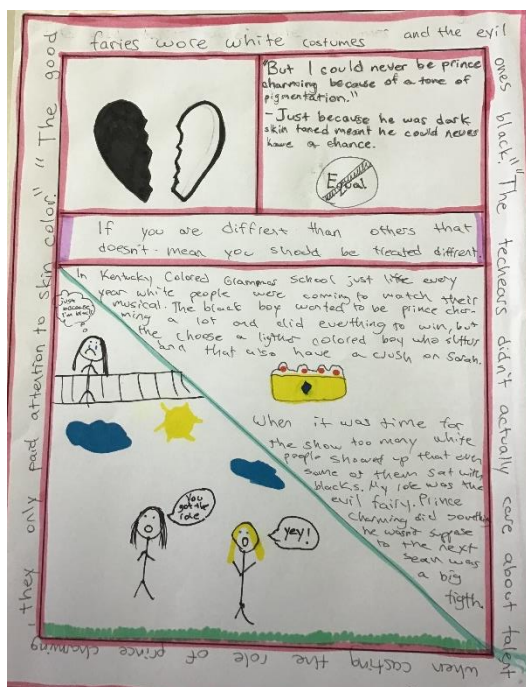 "The good faries wore white costumes and the evil ones black." The techears didn't actually care about talent when casting the role of prince charming - they only paid attention to skin color."
"But I could never be prince
charming because of a tone of
pigmentation."
- Just because he was dark
skin toned meant he could never
have a chance.
Equal
If you are diffrent than others that
doesn't mean you should be treated diffrent
In Kentucky Colored Grammar School just like every
year white people were comming to watch their
musical. The black boy wanted to be prince char-
ming a lot and did everthing to win, but
the choose a ligther colored boy who stutter
and that also have a crush on Sarah.
just because I'm black
When it was time for
the show too many white
people showed up that even
some of them sat with
blacks. My role was the
evil fairy. Prince
charming did
he wasn't suppose
to the next
sean was
a big
figth
You got the role.
yey!